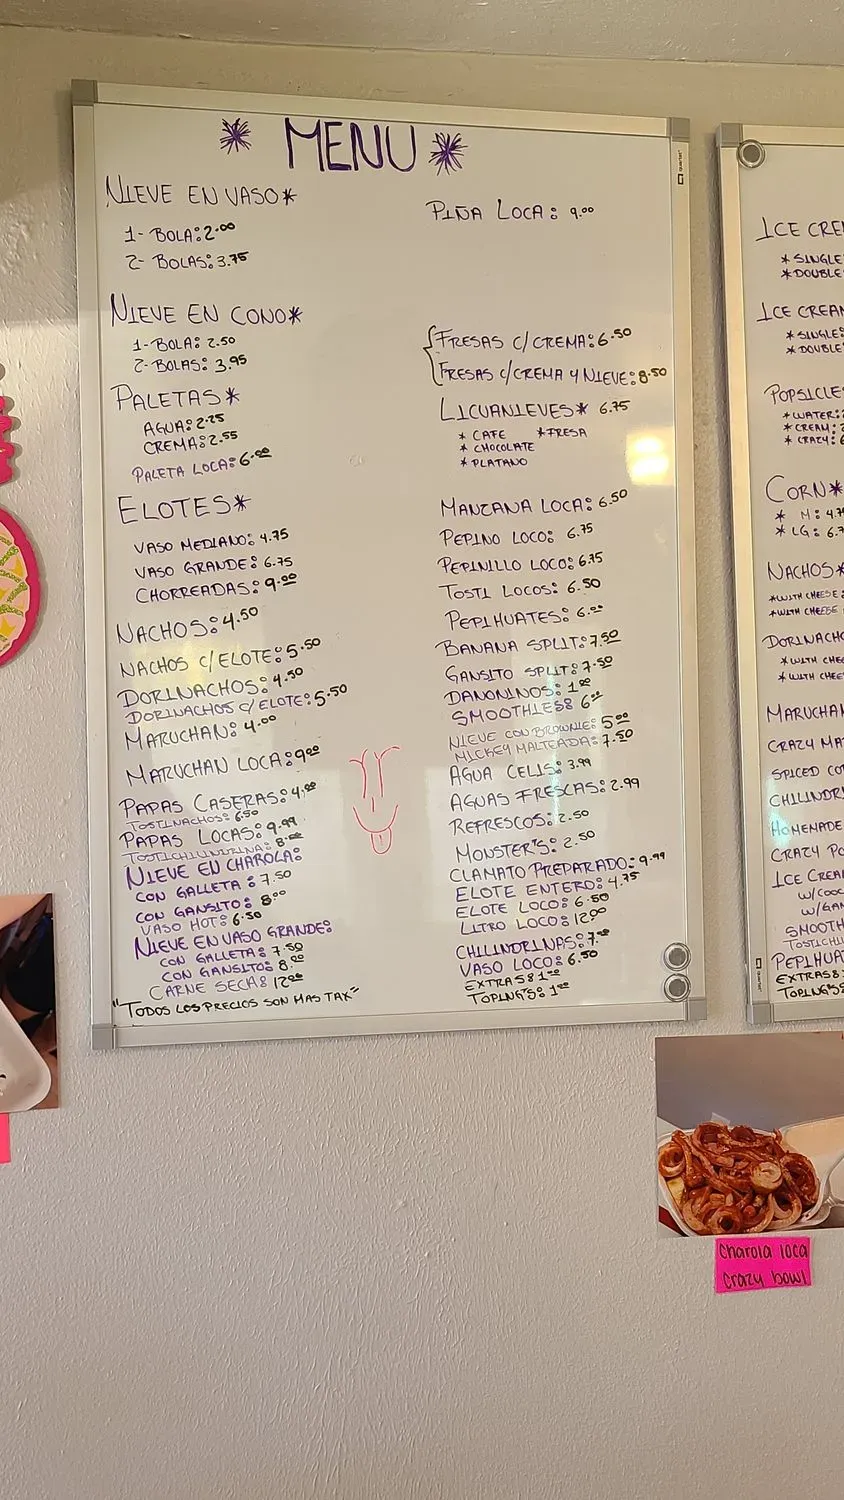 * MENU *
NIEVE EN VASO*
1- BOLA: 2.00
2- BOLAS: 3.75
NIEVE EN CONO*
1- BOLA: 2.50
2- BOLAS: 3.95
PALETAS*
AGUA: 2.25
CREMA: 2.55
PALETA LOCA: 6.00
ELOTES*
VASO MEDIANO: 4.75
VASO GRANDE: 6.75
CHORREADAS: 9.00
NACHOS: 4.50
NACHOS C/ELOTE: 5.50
DORINACHOS: 4.50
DORINACHOS C/ELOTE: 5.50
MARUCHAN: 4.00
MARUCHAN LOCA: 9.00
PAPAS CASERAS: 4.00
TOSTINACHOS: 6.50
PAPAS LOCAS: 9.99
TOSTICHILINDRINA: 8.00
NIEVE EN CHAROLA:
CON GALLETA: 7.50
CON GANSITO: 8.00
VASO HOT: 6.50
NIEVE EN VASO GRANDE:
CON GALLETA: 7.50
CON GANSITO: 8.00
CARNE SECA: 12.00
"TODOS LOS PRECIOS SON MAS TAX"
PIÑA LOCA: 9.00
FRESAS C/CREMA: 6.50
FRESAS C/CREMA Y NIEVE: 8.50
LICUANIEVES* 6.75
* CAFE * FRESA
* CHOCOLATE
* PLATANO
MANZANA LOCA: 6.50
PEPINO LOCO: 6.75
PEPINILLO LOCO: 6.75
TOSTI LOCOS: 6.50
PEPIHUATES: 6.00
BANANA SPLIT: 7.50
GANSITO SPLIT: 7.50
DANONINOS: 1.00
SMOOTHIES: 6.00
NIEVE CON BROWNIE: 5.00
MICKEY MALTEADA: 7.50
AGUA CELIS: 3.99
AGUAS FRESCAS: 2.99
REFRESCOS: 2.50
MONSTER'S: 2.50
CLAMATO PREPARADO: 9.99
ELOTE ENTERO: 4.75
ELOTE LOCO: 6.50
LITRO LOCO: 12.00
CHILINDRINAS: 7.00
VASO LOCO: 6.50
EXTRAS: 1.00
TOPING'S: 1.00
ICE CRE
* SINGLE
* DOUBLE
ICE CREAM
* SINGLE:
* DOUBLE
POPSICLE
* WATER:
* CREAM:
* CRAZY:
CORN*
* M: 4.7
* LG: 6.7
NACHOS*
*WITH CHEESE
*WITH CHEESE
DORINACHO
* WITH CHE
* WITH CHEE
MARUCHAN
CRAZY MA
SPICED CO
CHILINDRI
HOMENADE
CRAZY PO
ICE CREA
W/COO
W/GAN
SMOOTH
TOSTICHI
PEPIHUA
EXTRAS:
TOPING'S:
charola loca
crazy bowl